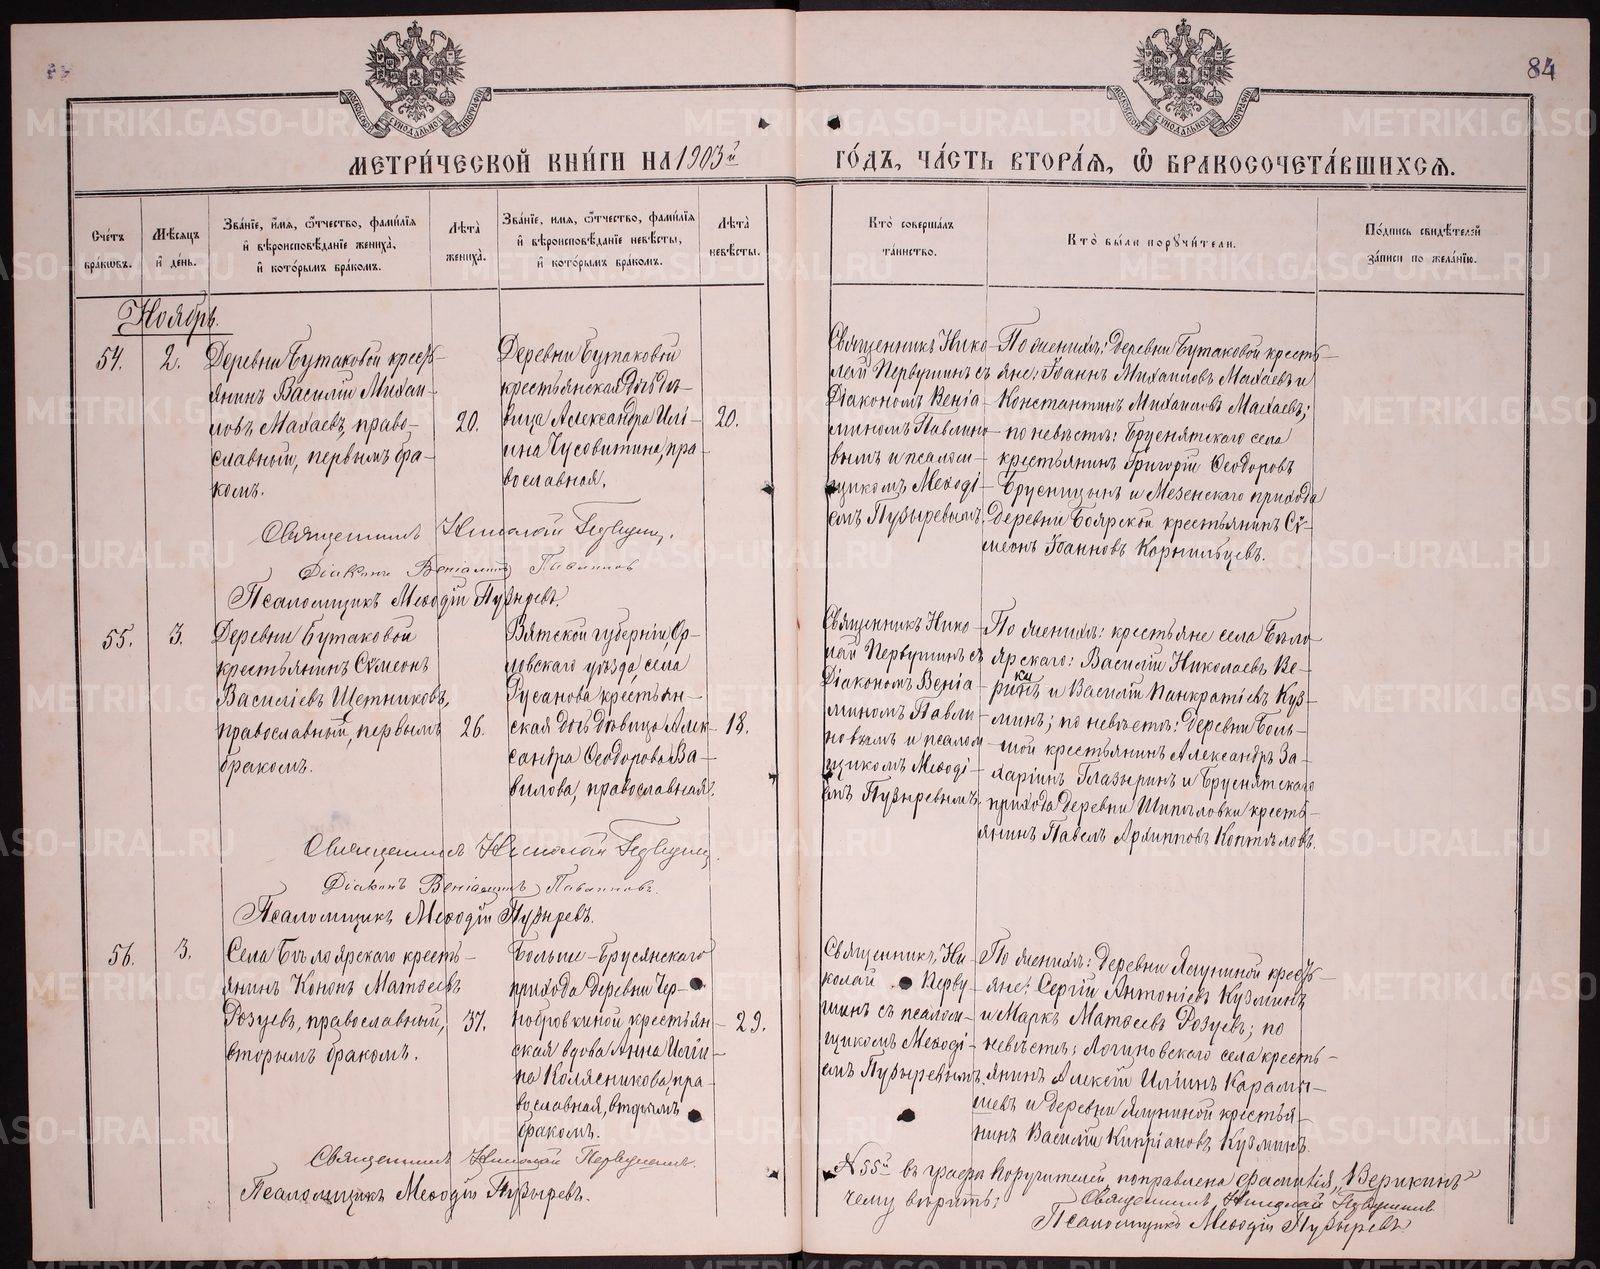 84
МЕТРИЧЕСКОЙ КНИГИ НА 1903й
ГОДЪ, ЧАСТЬ ВТОРАЯ, Ѡ БРАКОСОЧЕТАВШИХСЯ.
Счетъ браковъ.
Мѣсяцъ и день.
Званіе, имя, ѿчество, фамилія
и вѣроисповѣданіе жениха,
и которымъ бракомъ.
Лѣта жениха.
Званіе, имя, ѿчество, фамилія
и вѣроисповѣданіе невѣсты,
и которымъ бракомъ.
Лѣта невѣсты.
Кто совершалъ таинство.
Кто были поручители.
Подпись свидѣтелей
записи по желанію.
Ноябрь.
54.
2.
Деревни Бутаковой кресть-
янинъ Василій Михаи-
ловъ Махаевъ, право-
славный, первымъ бра-
комъ.
20.
Деревни Бутаковой
крестьянская дочь дѣ-
вица Александра Илі-
ина Чусовитина, пра-
вославная.
20.
Священникъ Нико-
лай Первушинъ съ
Діакономъ Веніа-
миномъ Павлино-
вымъ и псалом-
щикомъ Меѳоді-
емъ Пузыревымъ.
По женихѣ: деревни Бутаковой кресть-
яне: Іоаннъ Михаиловъ Махаевъ и
Константинъ Михаиловъ Махаевъ;
по невѣстѣ: Бруснятскаго села
крестьянинъ Григорій Ѳеодоровъ
Брусницынъ и Мезенскаго прихода
деревни Боярской крестьянинъ Сѵ-
меонъ Іоанновъ Корнильцевъ.
Священникъ Николай Первушин.
Діаконъ Веніаминъ Павлиновъ
Псаломщикъ Меѳодій Пузыревъ.
55.
3.
Деревни Бутаковой
крестьянинъ Сѵмеонъ
Василіевъ Щетниковъ,
православный, первымъ
бракомъ.
26.
Вятской губерніи, Ор-
ловскаго уѣзда, села
Русанова крестьян-
ская дочь дѣвица Алек-
сандра Ѳеодорова Ва-
вилова, православная.
18.
Священникъ Нико-
лай Первушинъ съ
Діакономъ Веніа-
миномъ Павли-
новымъ и псалом-
щикомъ Меѳоді-
емъ Пузыревымъ.
По женихѣ: крестьяне села Бѣло-
ярскаго: Василій Николаевъ Ве-
ки
ринъ и Василій Панкратіевъ Куз-
минъ; по невѣстѣ: деревни Боль-
шой крестьянинъ Александръ За-
харіинъ Глазыринъ и Бруснятскаго
прихода деревни Шипѣловки кресть-
янинъ Павелъ Архипповъ Коптяловъ.
Священникъ Николай Первушин.
Діаконъ Веніаминъ Павлиновъ.
Псаломщикъ Меѳодій Пузыревъ.
56.
3.
Села Бѣлоярскаго кресть-
янинъ Кононъ Матѳеевъ
Розуевъ, православный,
вторымъ бракомъ.
37.
Больше-Брусянскаго
прихода деревни Чер-
нобровкиной крестьян-
ская вдова Анна Иліи-
на Колясникова, пра-
вославная, вторымъ
бракомъ.
29.
Священникъ Ни-
колай Перву-
шинъ съ псалом-
щикомъ Меѳоді-
емъ Пузыревымъ.
По женихѣ: деревни Ялуниной кресть-
яне: Сергій Антоніевъ Кузминъ
и Маркъ Матѳеевъ Розуевъ; по
невѣстѣ: Логиновскаго села кресть-
янинъ Алексій Иліинъ Карамы-
шевъ и деревни Ялуниной крестья-
нинъ Василій Кипріановъ Кузминъ.
Священникъ Николай Первушинъ.
Псаломщикъ Меѳодій Пузыревъ.
N 55й въ графѣ поручителей поправлена фамилія „Верикинъ“
чему вѣрить:
Священникъ Николай Первушинъ
Псаломщикъ Меѳодій Пузыревъ